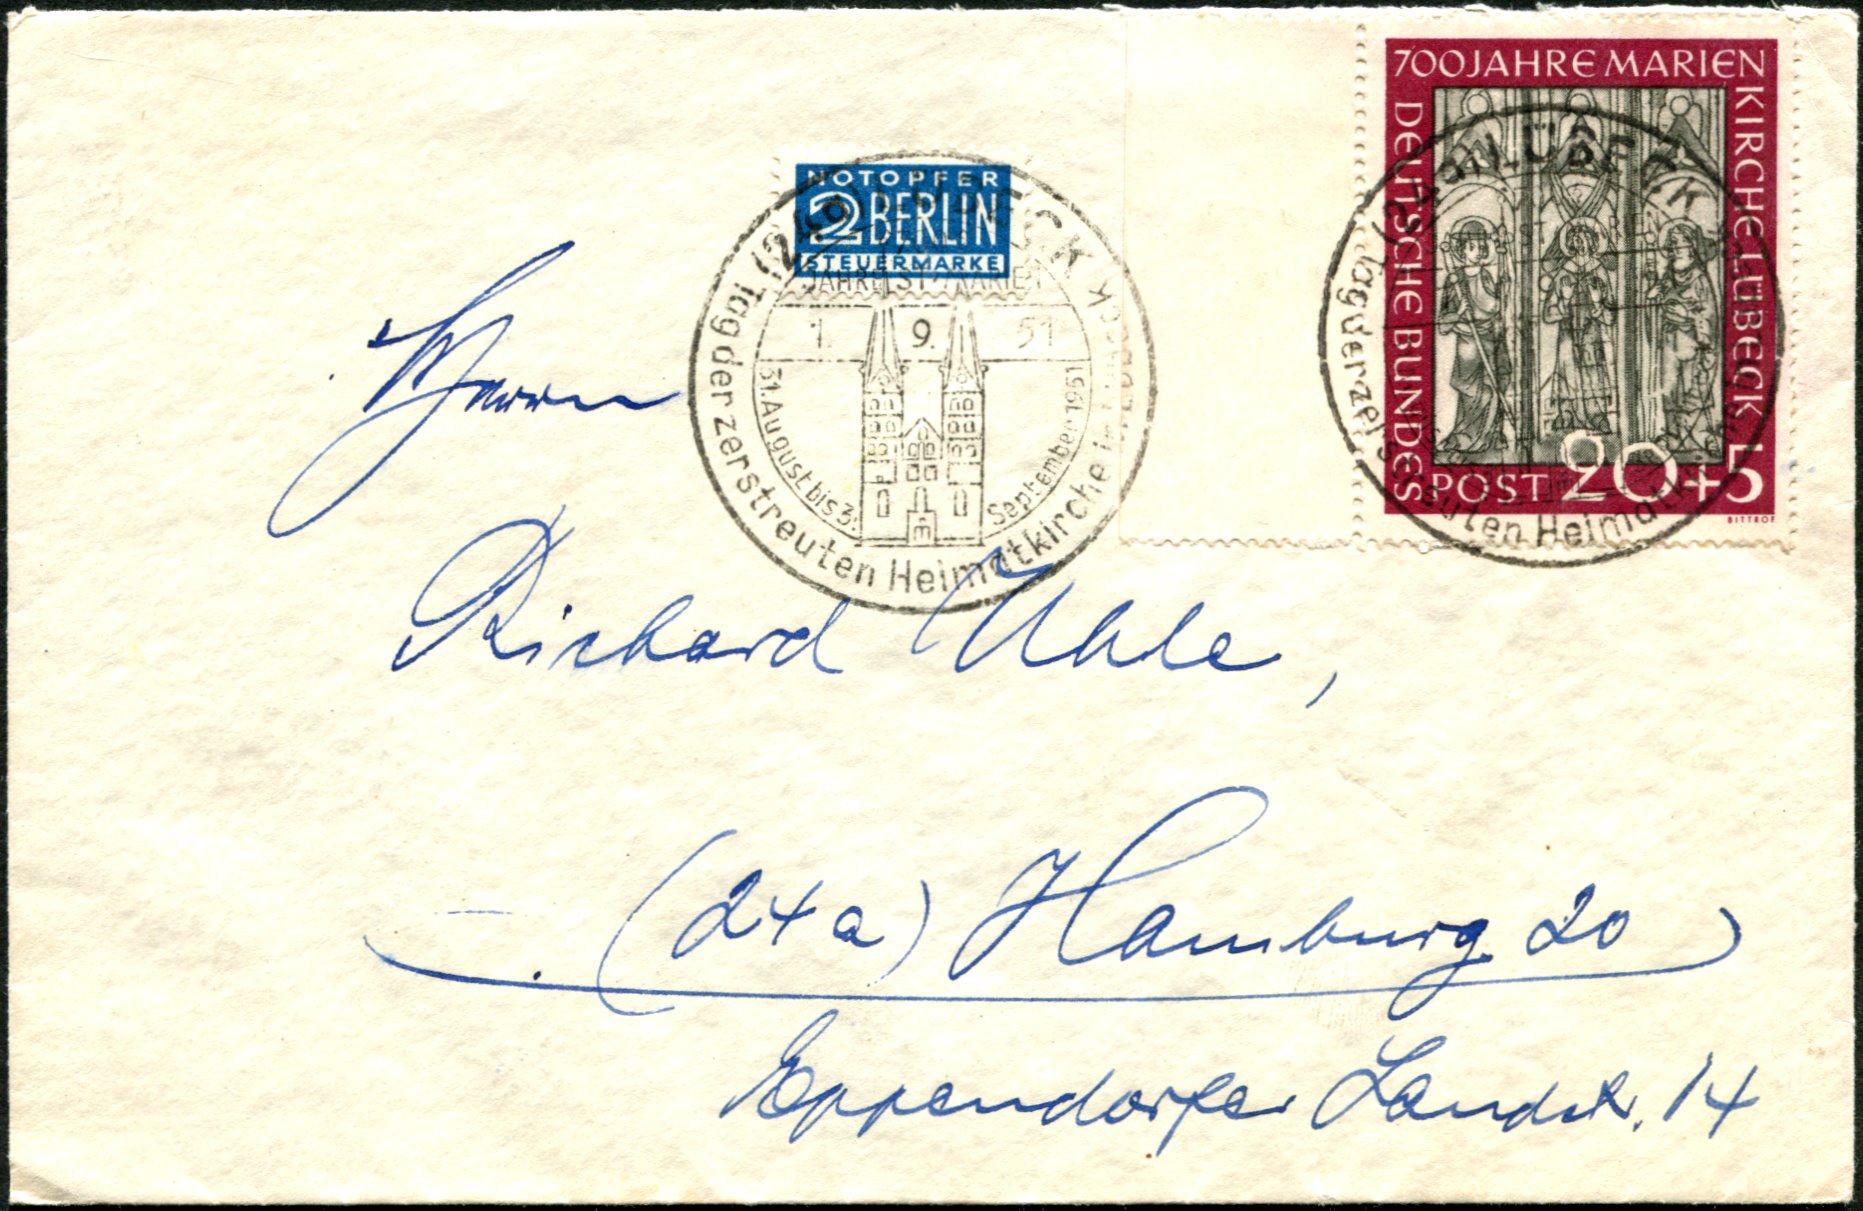 700 JAHRE MARIEN
KIRCHE LÜBECK
DEUTSCHE BUNDES
POST 20+5
BITTROF
NOTOPFER
2 BERLIN
STEUERMARKE
(24b) LÜBECK
700 JAHRE ST. MARIEN
1. 9. 51
31. August bis 3. September 1951
Tag der zerstreuten Heimatkirche in Lübeck
(24b) LÜBECK
Tag der zerstreuten Heimatkirche
Herrn
Richard Uhle,
(24a) Hamburg 20
Eppendorfer Landstr. 14